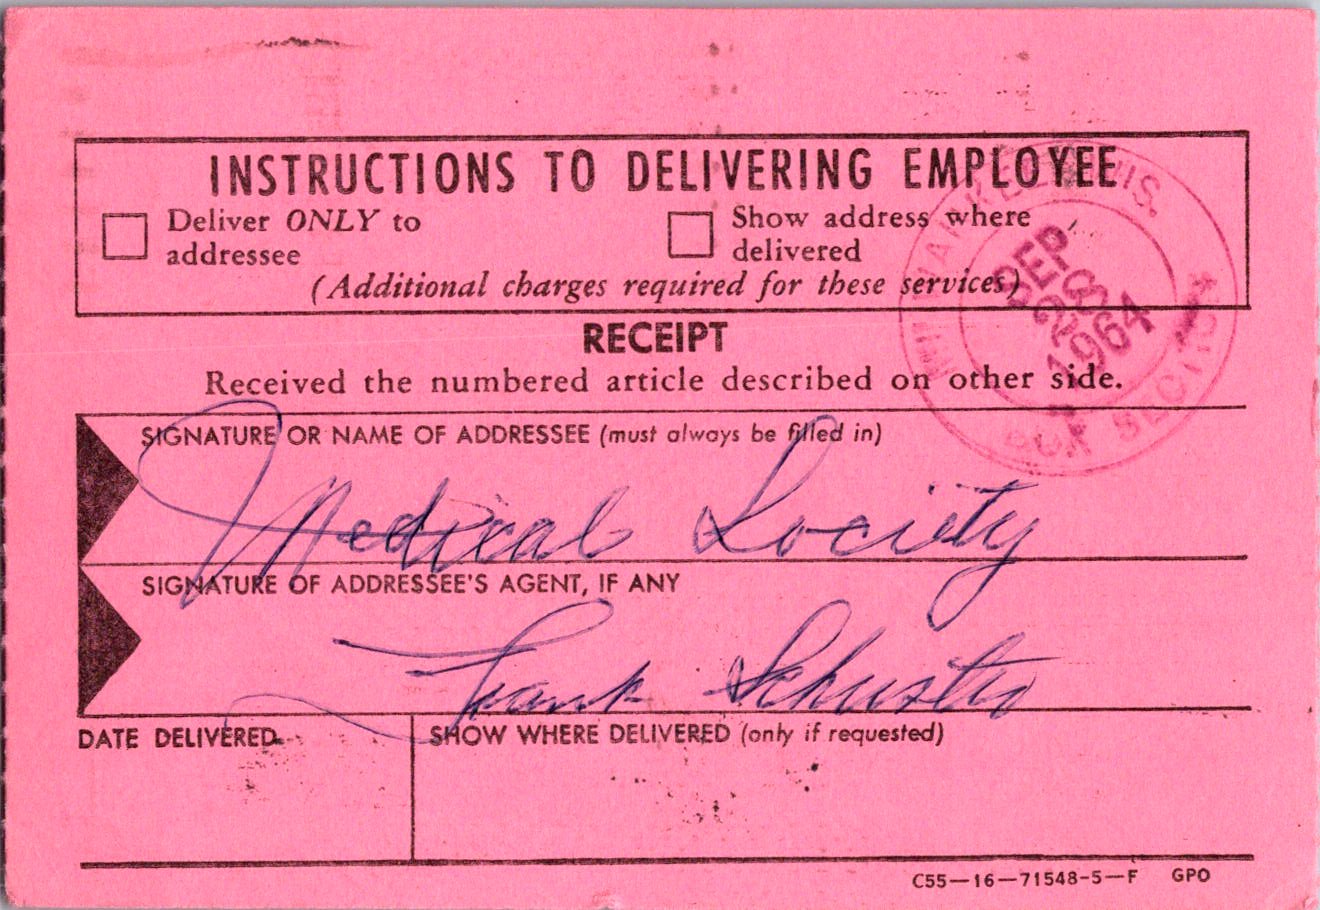 INSTRUCTIONS TO DELIVERING EMPLOYEE
Deliver ONLY to
addressee
Show address where
delivered
(Additional charges required for these services)
RECEIPT
Received the numbered article described on other side.
MILWAUKEE, WIS.
SEP
1964
BOX SECTION
SIGNATURE OR NAME OF ADDRESSEE (must always be filled in)
Medical Society
SIGNATURE OF ADDRESSEE'S AGENT, IF ANY
Frank Schuster
DATE DELIVERED
SHOW WHERE DELIVERED (only if requested)
C55—16—71548-5—F GPO